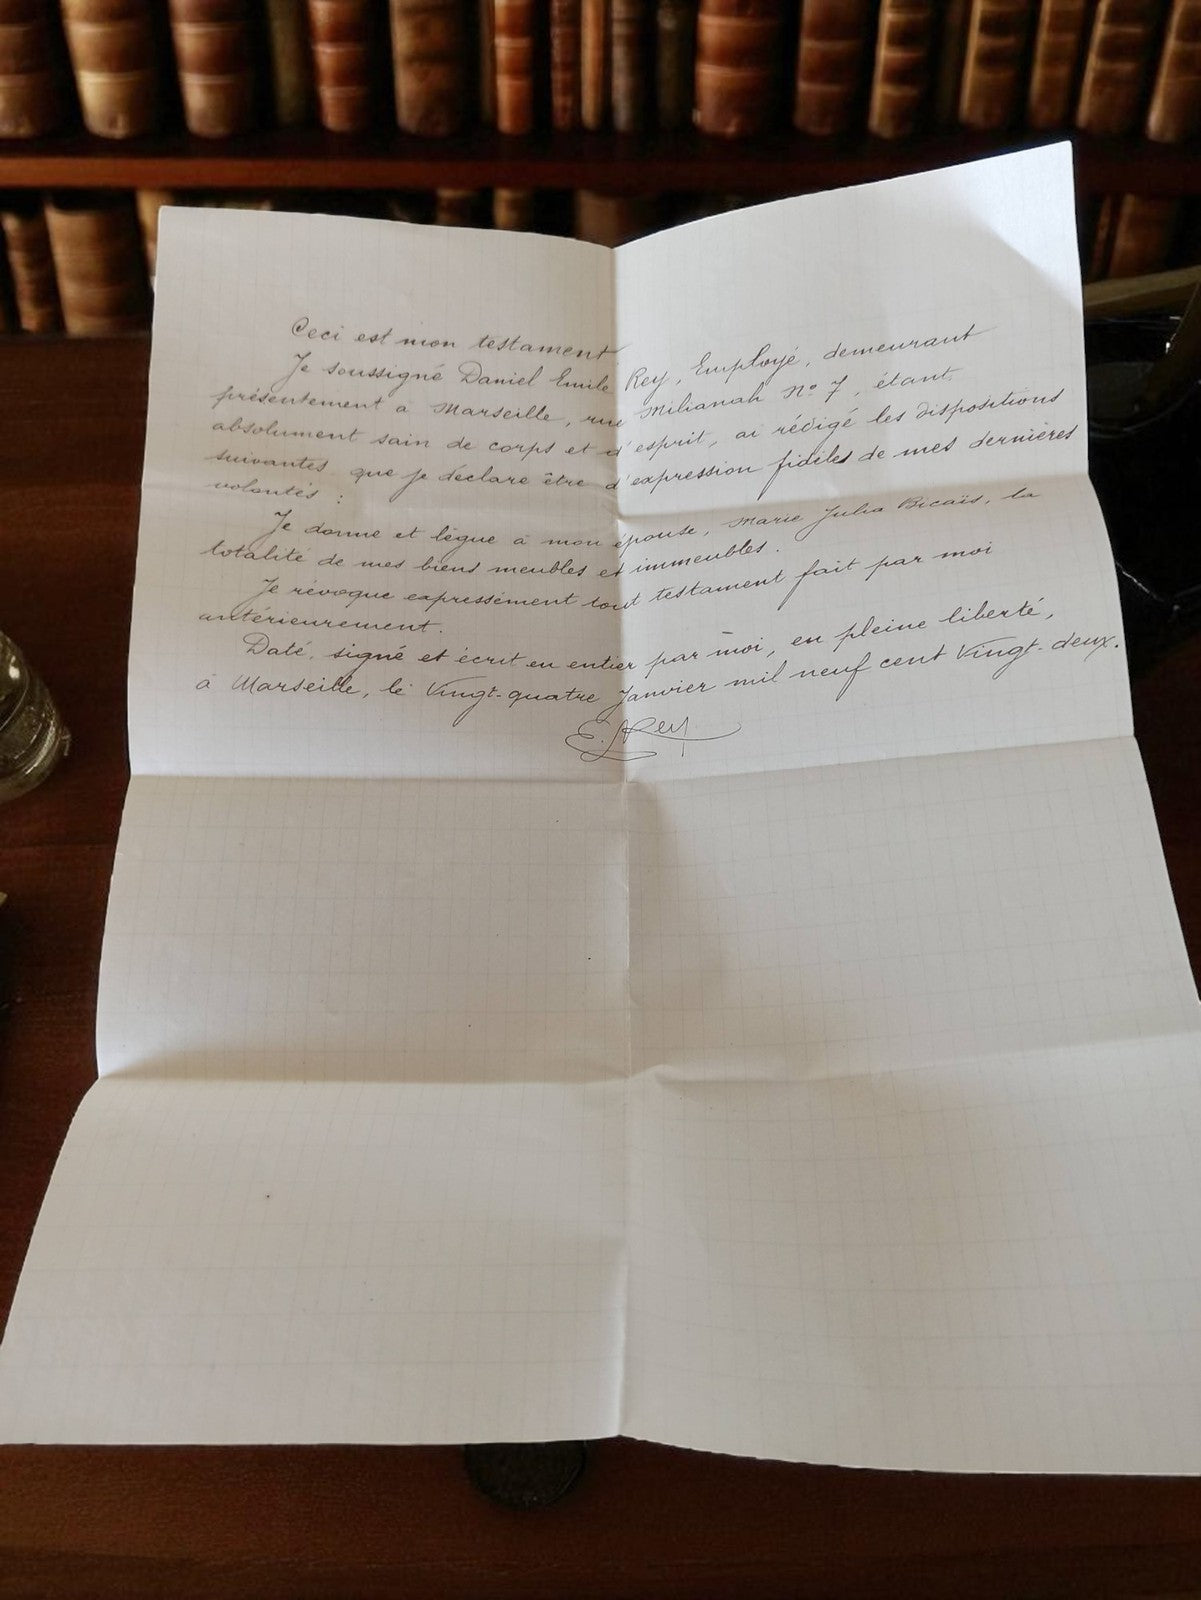 Ceci est mon testament
Je soussigné Daniel Emile Rey, Employé, demeurant
présentement à Marseille, rue Milianah No 7, étant
absolument sain de corps et d'esprit, ai rédigé les dispositions
suivantes que je déclare être d'expression fidèles de mes dernières
volontés :
Je donne et lègue à mon épouse, Marie Julia Bicaïs, la
totalité de mes biens meubles et immeubles.
Je révoque expressément tout testament fait par moi
antérieurement.
Daté, signé et écrit en entier par moi, en pleine liberté,
à Marseille, le Vingt-quatre Janvier mil neuf cent Vingt-deux.
E. Rey